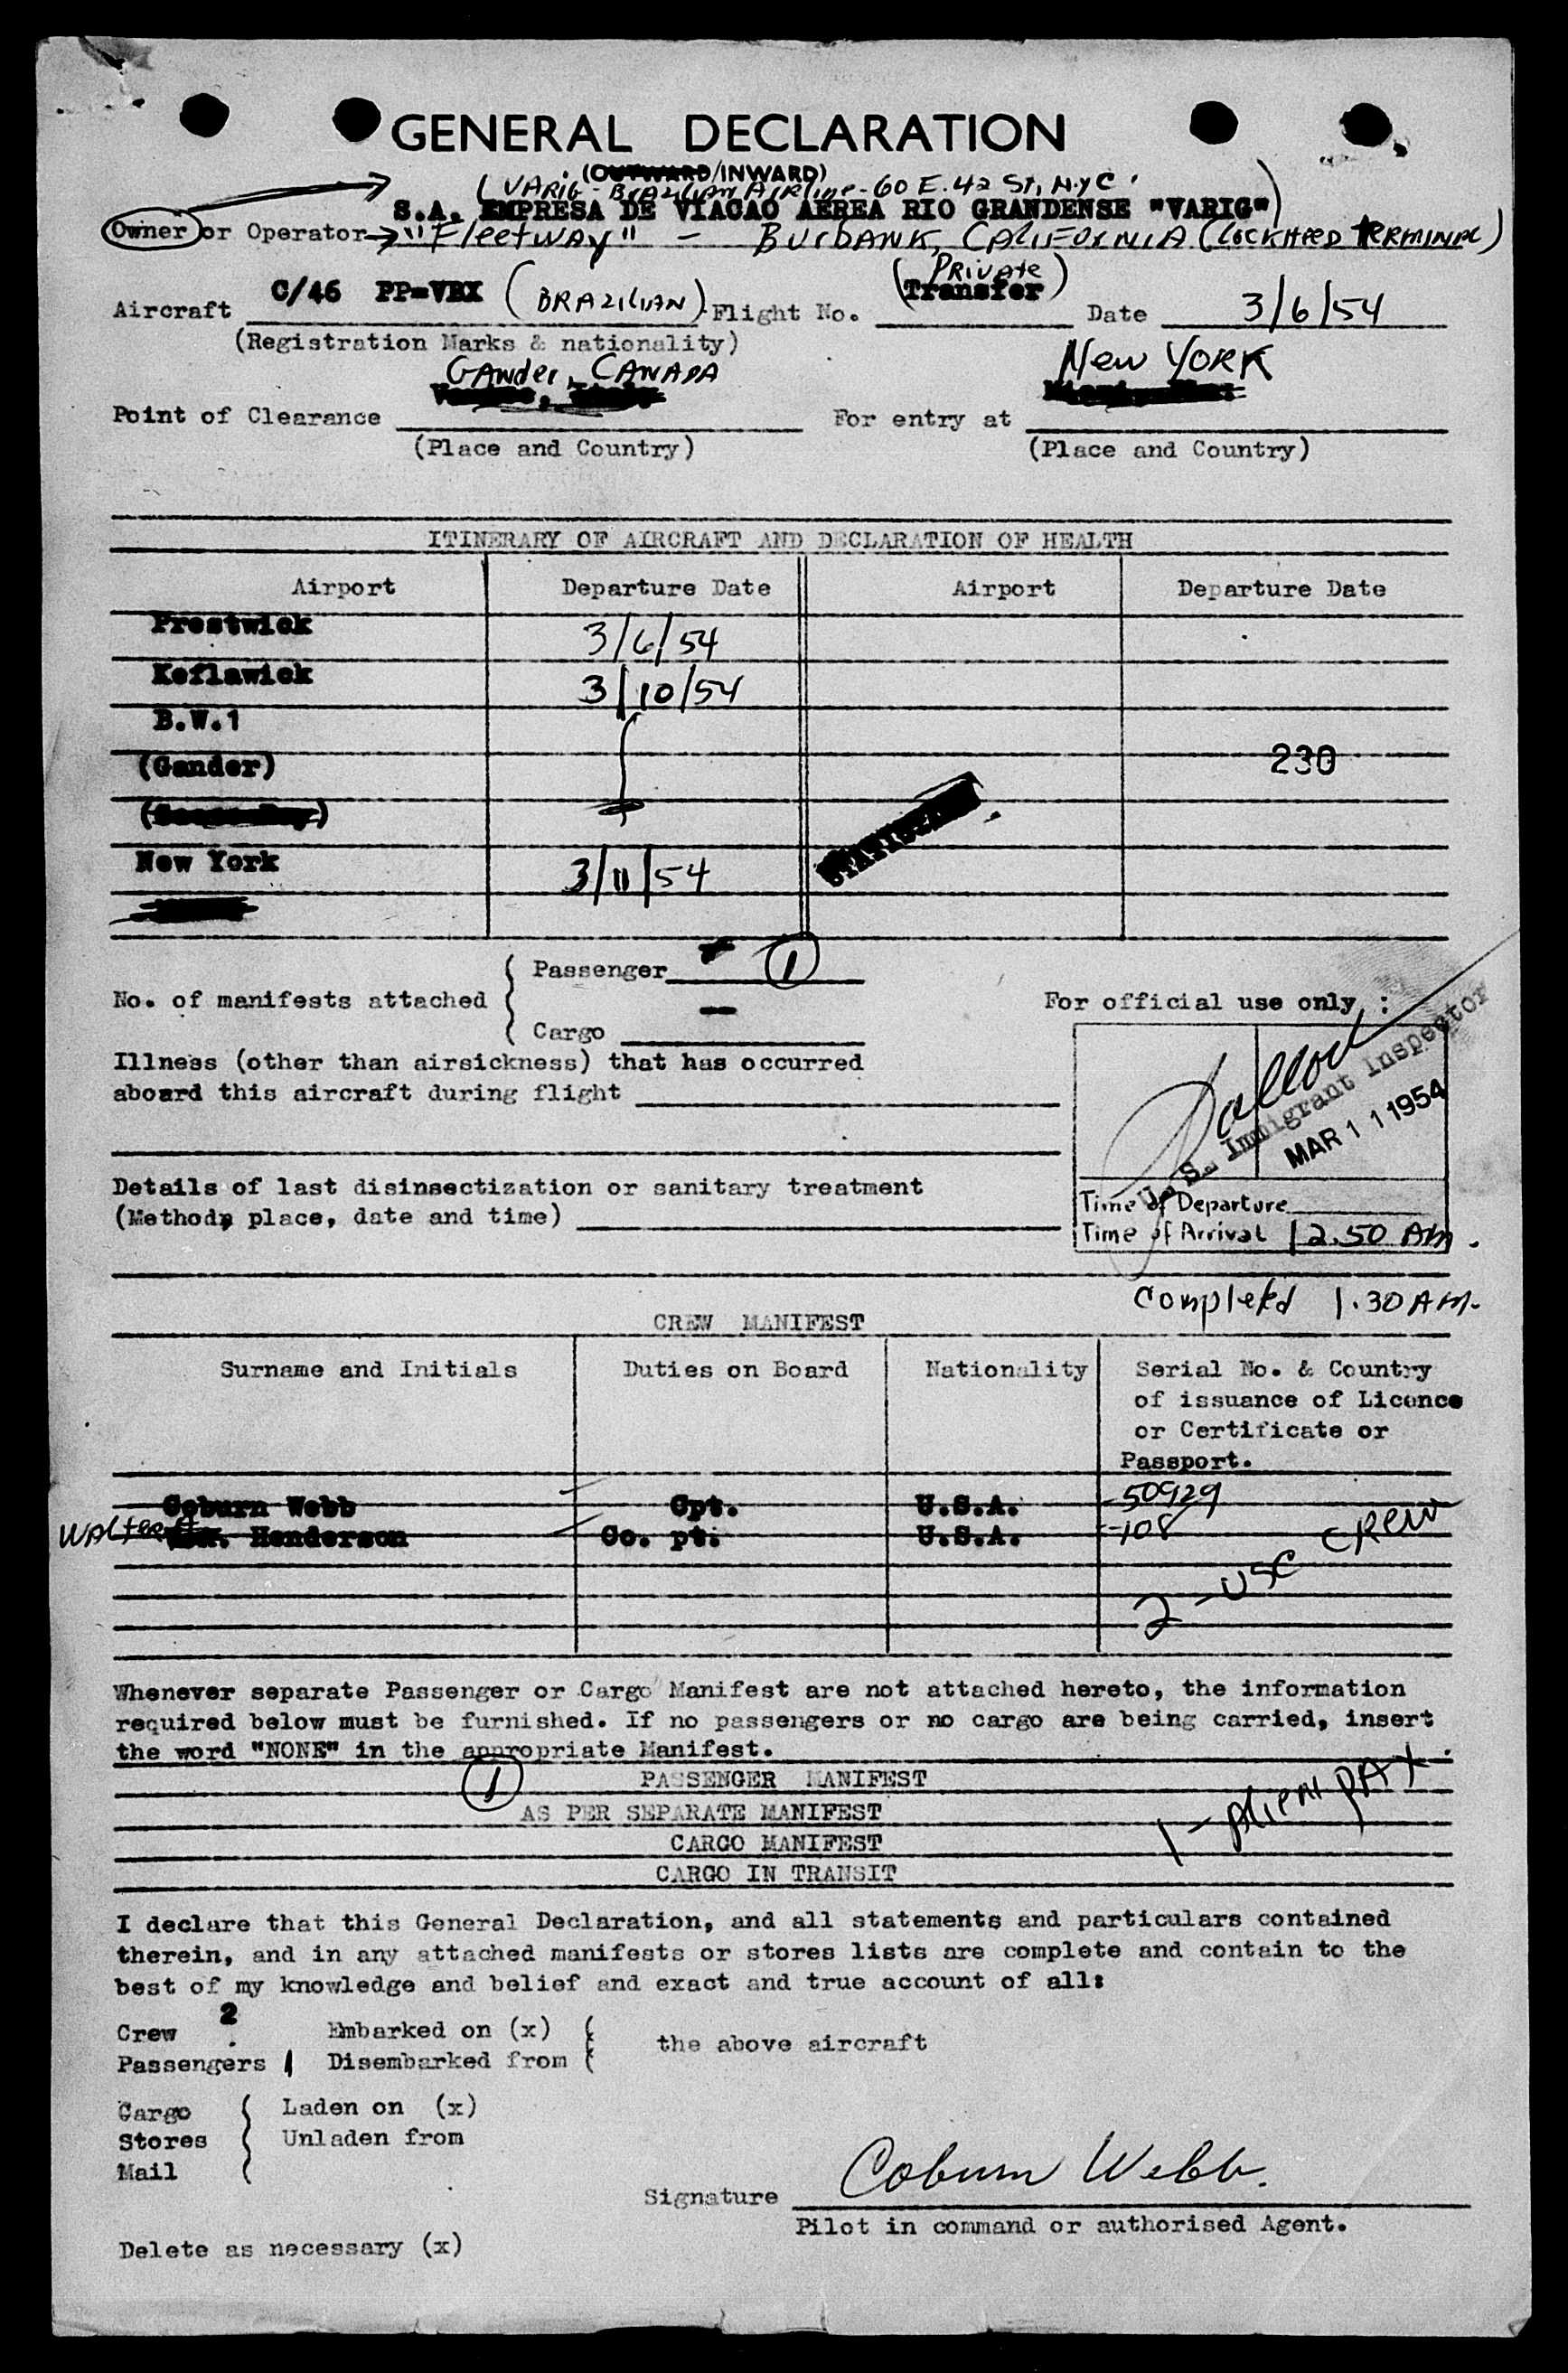 GENERAL DECLARATION
(OUTWARD/INWARD)
(VARIG - BRAZILIAN AIRline - 60 E. 42 St, N.Y.C.
S.A. EMPRESA DE VIACAO AEREA RIO GRANDENSE "VARIG")
Owner or Operator "Fleetway" - BURBANK, CALIFORNIA (LOCKHEED TERMINAL)
(Private
Aircraft C/46 PP-VBX (BRAZILIAN) Flight No. Transfer) Date 3/6/54
(Registration Marks & nationality)
Gander, CANADA New YORK
Point of Clearance For entry at
(Place and Country) (Place and Country)
ITINERARY OF AIRCRAFT AND DECLARATION OF HEALTH
Airport Departure Date Airport Departure Date
Prestwick 3/6/54
Keflawick 3/10/54
B.W.1
(Gander) 230
New York 3/11/54
Passenger 1
No. of manifests attached For official use only :
Cargo -
Illness (other than airsickness) that has occurred
aboard this aircraft during flight
U.S. Immigrant Inspector
MAR 11 1954
Details of last disinsectization or sanitary treatment
(Method, place, date and time)
Time of Departure
Time of Arrival 12.50 AM.
Completed 1.30 AM.
CREW MANIFEST
Surname and Initials Duties on Board Nationality Serial No. & Country
of issuance of Licence
or Certificate or
Passport.
Coburn Webb Cpt. U.S.A. 50929
WALTER Henderson Co. pt. U.S.A. 108
2 - USC CREW
Whenever separate Passenger or Cargo Manifest are not attached hereto, the information
required below must be furnished. If no passengers or no cargo are being carried, insert
the word "NONE" in the appropriate Manifest.
1 PASSENGER MANIFEST
AS PER SEPARATE MANIFEST 1 - Alien PAX
CARGO MANIFEST
CARGO IN TRANSIT
I declare that this General Declaration, and all statements and particulars contained
therein, and in any attached manifests or stores lists are complete and contain to the
best of my knowledge and belief and exact and true account of all:
Crew 2 Embarked on (x) the above aircraft
Passengers 1 Disembarked from
Cargo Laden on (x)
Stores Unladen from
Mail
Signature Coburn Webb.
Pilot in command or authorised Agent.
Delete as necessary (x)